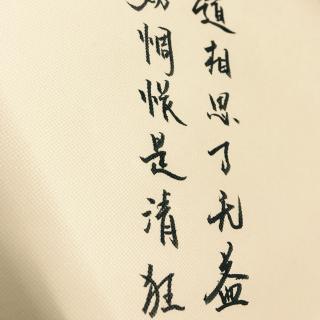 道相思了无益
妨惆悵是清狂